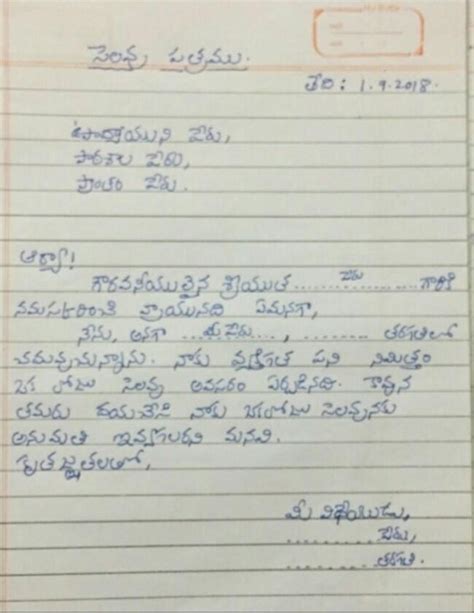 సెలవు పత్రము.
తేది : 1.9.2018.
ఉపాధ్యాయుని పేరు,
పాఠశాల పేరు,
ప్రాంతం పేరు.
ఆర్యా!
గౌరవనీయులైన శ్రీయుత ......పేరు........ గారికి
నమస్కరించి వ్రాయునది ఏమనగా,
నేను, అనగా ...మీ పేరు...., ........ తరగతిలో
చదువుచున్నాను. నాకు వ్యక్తిగత పని నిమిత్తం
ఒక రోజు సెలవు అవసరం ఏర్పడినది. కావున
తమరు దయచేసి నాకు ఒకరోజు సెలవునకు
అనుమతి ఇవ్వగలరని మనవి.
కృతజ్ఞతలతో,
మీ విధేయుడు,
......... పేరు,
......... తరగతి.